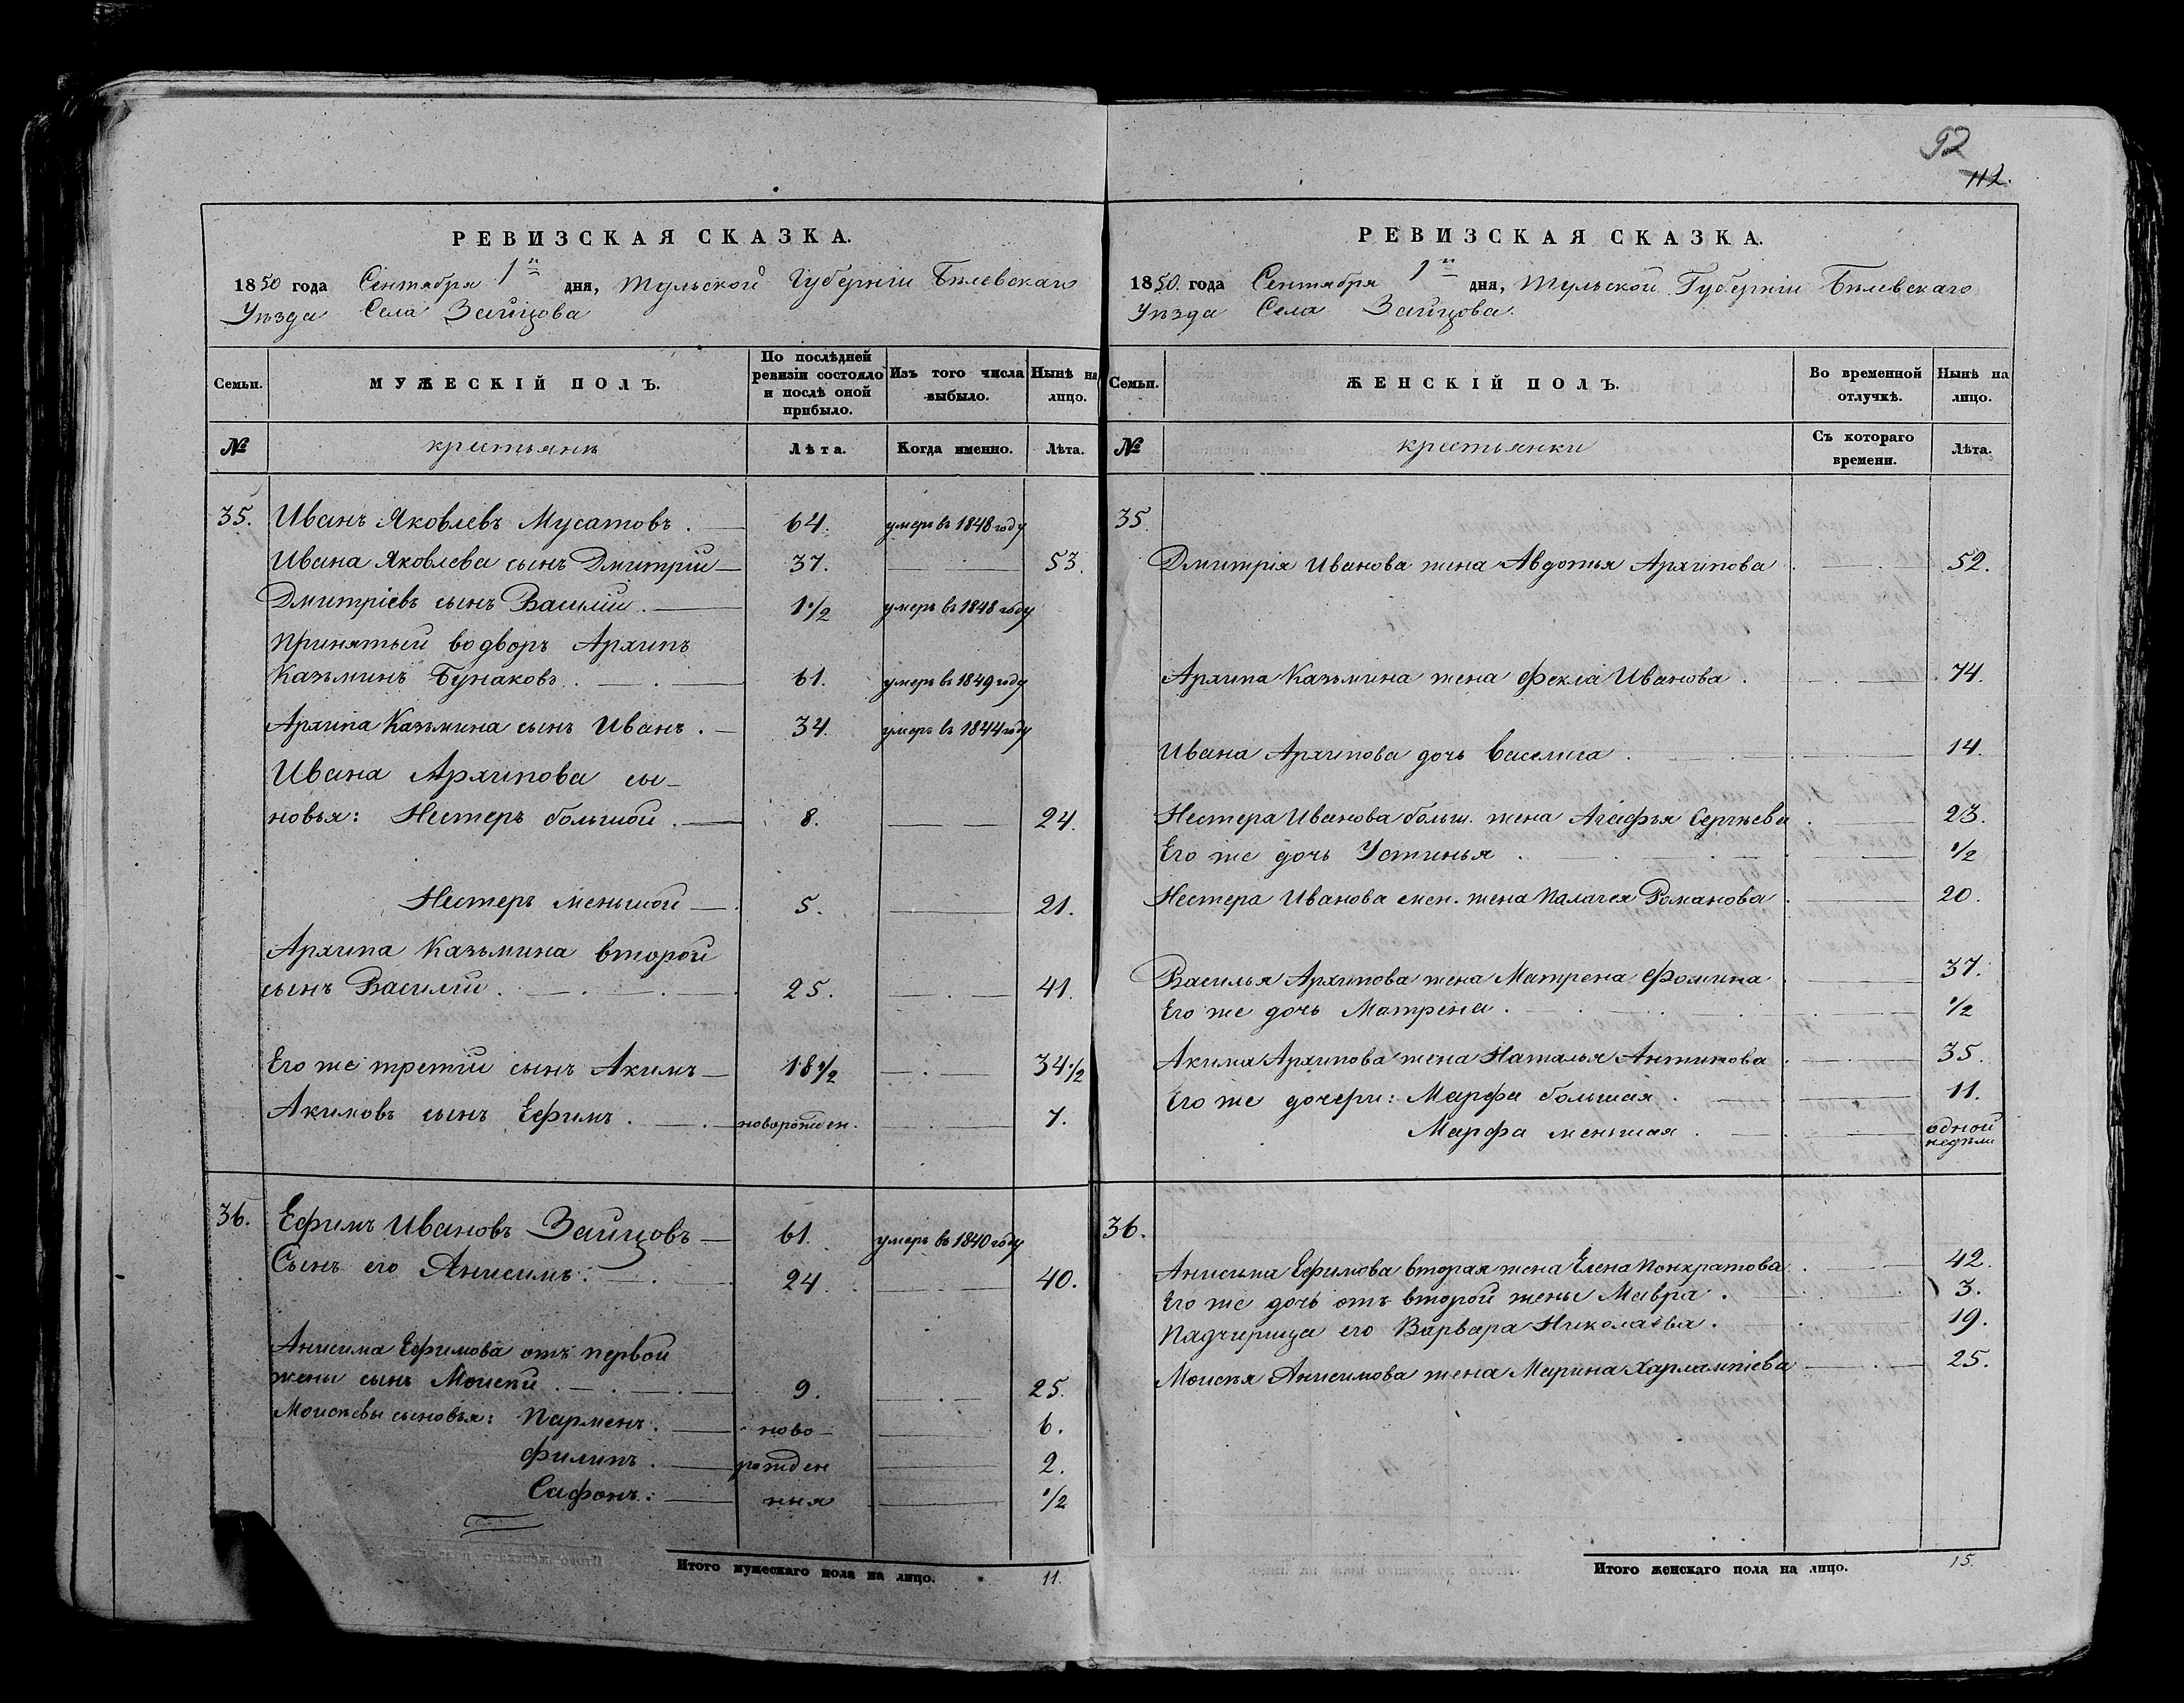 РЕВИЗСКАЯ СКАЗКА.
1850 года Сентября 1го дня, Тульской Губерніи Бѣлевскаго
Уѣзда Села Зайцова
Семьи. МУЖЕСКІЙ ПОЛЪ. По послѣдней ревизіи состояло и послѣ оной прибыло. Изъ того числа выбыло. Нынѣ на лицо.
№ крестьянъ Лѣта. Когда именно. Лѣта.
35. Иванъ Яковлевъ Мусатовъ. 64. умеръ въ 1848 году
Ивана Яковлева сынъ Дмитрій 37. 53.
Дмитріевъ сынъ Василій. 1 1/2 умеръ въ 1848 году
Принятый во дворъ Архипъ
Казьминъ Бунаковъ. 61. умеръ въ 1849 году
Архипа Казьмина сынъ Иванъ. 34. умеръ въ 1844 году
Ивана Архипова сы-
новья: Нестеръ большой. 8. 24.
Нестеръ меньшой 5. 21.
Архипа Казьмина второй
сынъ Василій. 25. 41.
Его же третій сынъ Акимъ 18 1/2 34 1/2
Акимовъ сынъ Ефимъ. новорожден. 7.
36. Ефимъ Ивановъ Зайцовъ 61. умеръ въ 1840 году
Сынъ его Анисимъ. 24 40.
Анисима Ефимова отъ первой
жены сынъ Моисѣй. 9. 25.
Моисѣевы сыновья: Парменъ. ново- 6.
Филипъ. рожден 2.
Сафонъ. ныя 1/2
Итого мужескаго пола на лицо. 11.
92
112.
РЕВИЗСКАЯ СКАЗКА.
1850. года Сентября 1го дня, Тульской Губерніи Бѣлевскаго
Уѣзда Села Зайцова.
Семьи. ЖЕНСКІЙ ПОЛЪ. Во временной отлучкѣ. Нынѣ на лицо.
№ крестьянки Съ котораго времени. Лѣта.
35.
Дмитрія Иванова жена Авдотья Архипова 52.
Архипа Казьмина жена Фекла Иванова. 74.
Ивана Архипова дочь Василиса. 14.
Нестера Иванова больш. жена Агафья Сергѣева 23.
Его же дочь Устинья. 1/2
Нестера Иванова мен. жена Палагея Романова 20.
Василья Архипова жена Матрена Фомина 37.
Его же дочь Матрена. 1/2
Акима Архипова жена Наталья Антипова 35.
Его же дочери: Марфа большая. 11.
Марфа меньшая. одной недѣли
36.
Анисима Ефимова вторая жена Елена Понкратова 42.
Его же дочь отъ второй жены Мавра. 3.
Падчерица его Варвара Николаева. 19.
Моисѣя Анисимова жена Марина Харлампіева 25.
Итого женскаго пола на лицо. 15.